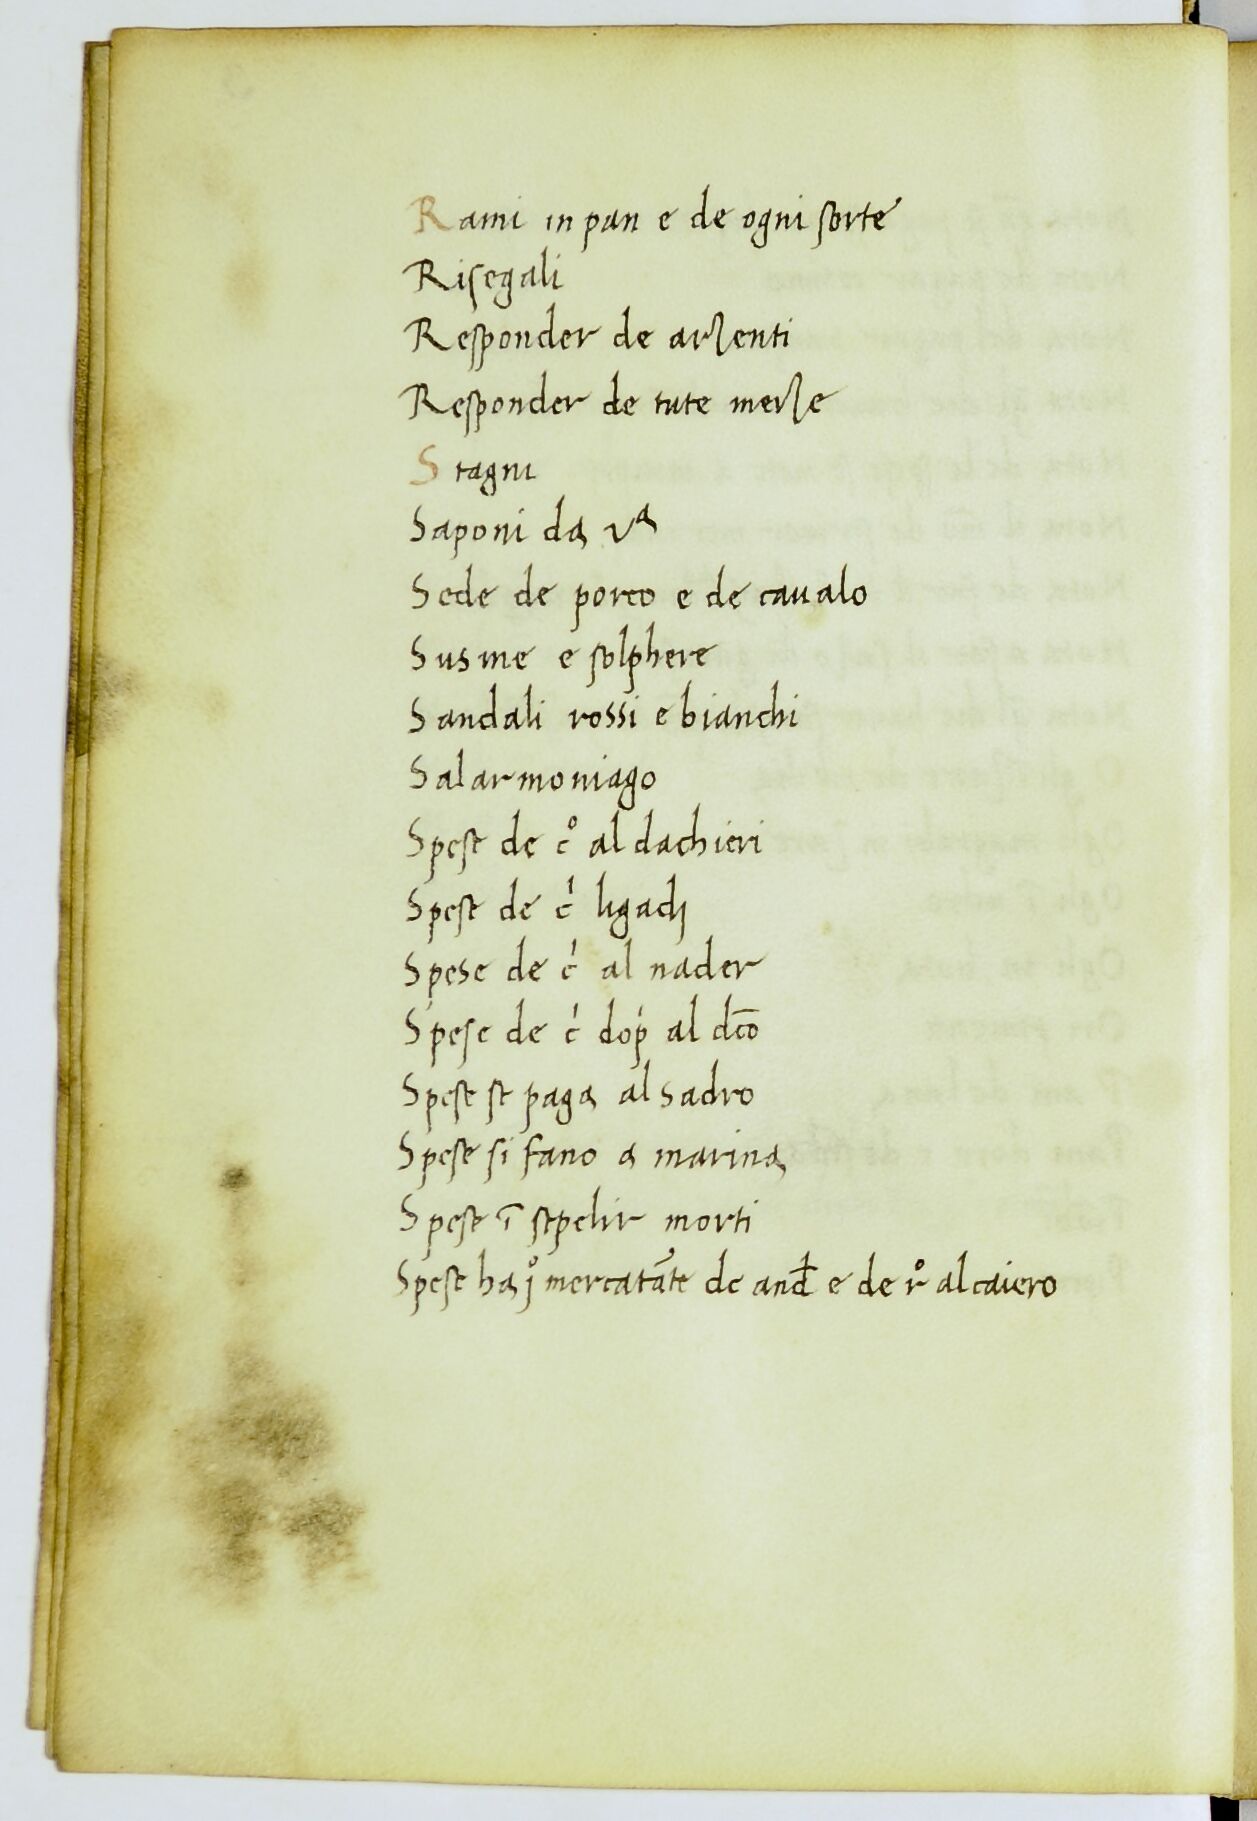 Rami in pan e de ogni sorte
Risegali
Responder de arzenti
Responder de tute merze
Stagni
Saponi da vª
Sede de porco e de caualo
Susme e solphere
Sandali rossi e bianchi
Salarmoniago
Spese de c° al dachieri
Spese de c¹ ligadj
Spese de c¹ al nader
Spese de c¹ dop al dc̄o
Spese se paga al sadro
Spese si fano a marina
Spese ī sepelir morti
Spese ha mercatāte de e de r° al caiero